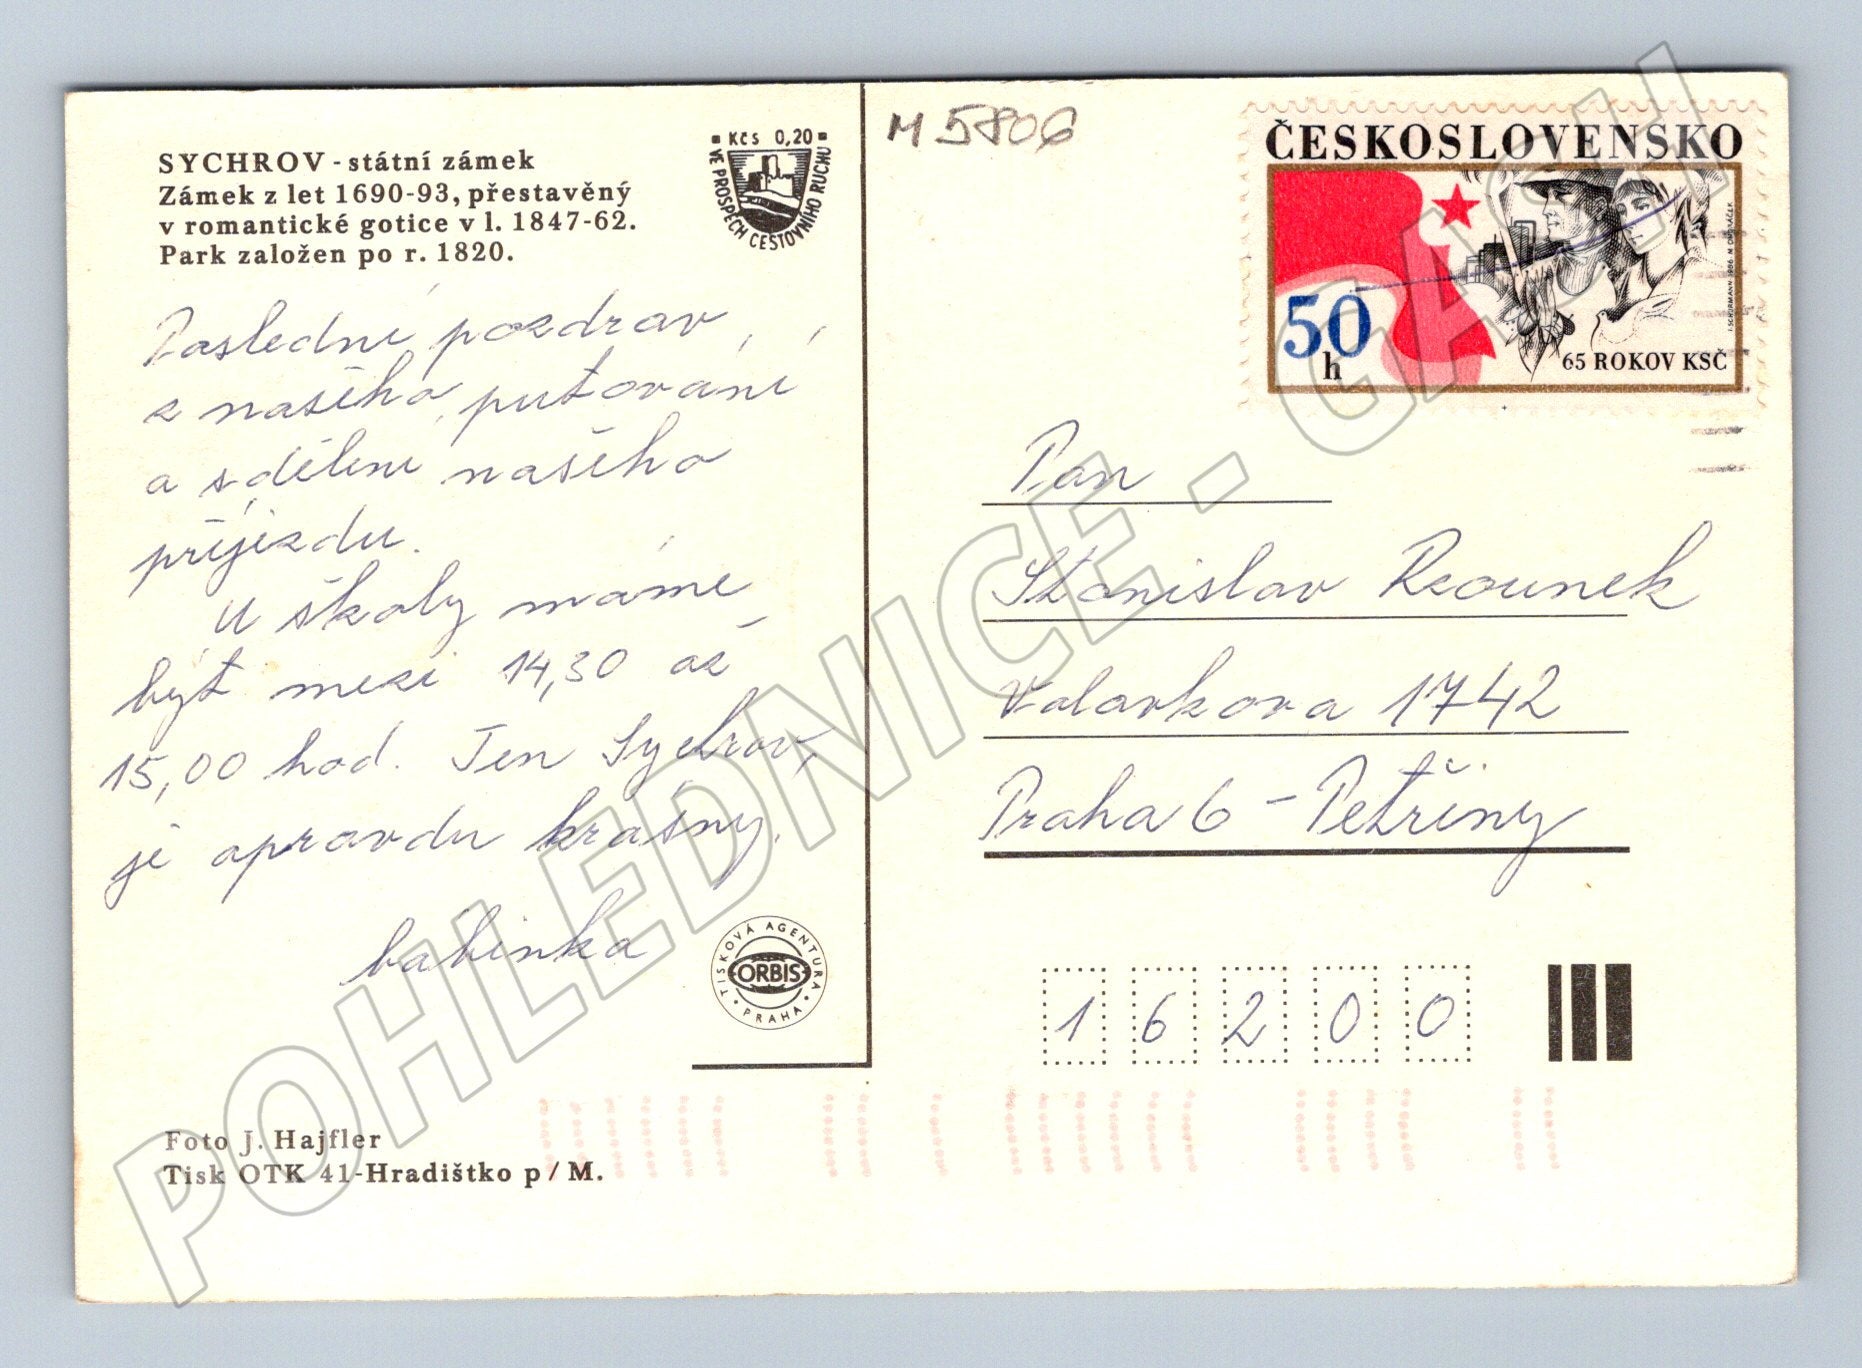 SYCHROV - státní zámek
Zámek z let 1690-93, přestavěný
v romantické gotice v l. 1847-62.
Park založen po r. 1820.
KČS 0,20
VE PROSPĚCH CESTOVNÍHO RUCHU
Poslední pozdrav
z našeho putování
a sdělení našeho
příjezdu.
U školy máme
být mezi 14,30 až
15,00 hod. Ten Sychrov
je opravdu krásný.
babinka
TISKOVÁ AGENTURA
ORBIS
PRAHA
Foto J. Hajfler
Tisk OTK 41-Hradištko p/M.
M 5806
ČESKOSLOVENSKO
50
h
65 ROKOV KSČ
I. SCHURMANN 1986 M. ONDRÁČEK
Pan
Stanislav Rzounek
Valavkova 1742
Praha 6 - Petřiny
16200
POHLEDNICE - GASH